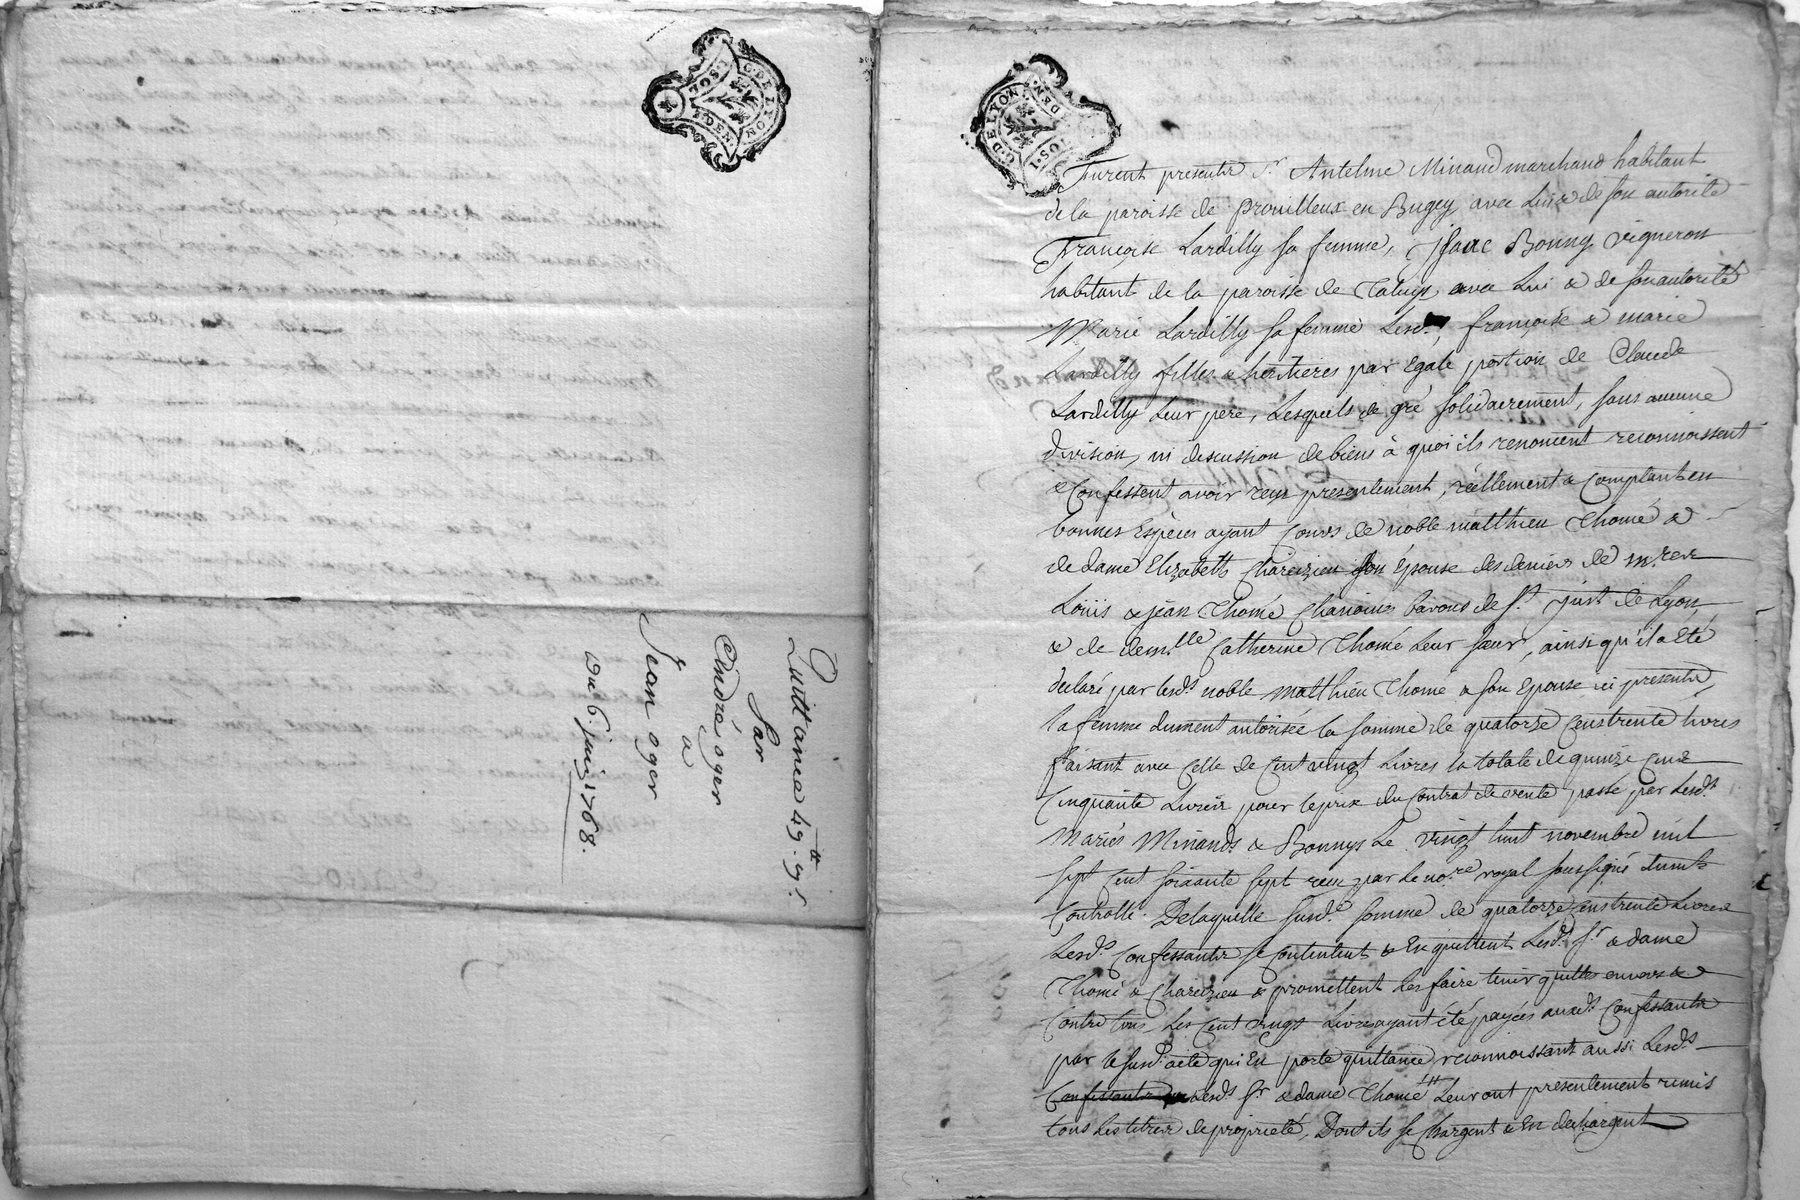 G. DE LYON
2 SOLS 1 DEN
Quittance 49.₶ 9.s.
Par
André oger
a
Jean oger
du 6. juin 1768.
G. DE LYON
2 SOLS 1 DEN
Furent presents Sr. Antelme Minand marchand habitant
de la paroisse de Prouilleux en Bugey avec Lui & de son autorité
Françoise Lardilly sa femme, jsaac Bonny vigneron
habitant de la paroisse de Taluys avec Lui & de son autorité
Marie Lardilly sa femme Lesd., françoise & marie
Lardilly filles & heritieres par Egale portion de Claude
Lardilly Leur pere, Lesquels de gré solidairement, sans aucune
division, ni discussion de biens à quoi ils renoncent reconnoissent
& Confessent avoir reçu presentement, réellement & Comptant en
bonnes Espèces ayant Cours de noble matthieu Thomé &
de dame Elizabeth Chareizieu son Epouse des deniers de mres
Loüis & jean Thomé Chanoines barons de St. just de Lyon
& de demlle Catherine Thomé Leur sœur, ainsi qu'il a été
declaré par lesds noble Matthieu Thomé & son Epouse ici presents,
la femme dument autorisée la somme de quatorze Cens trente livres
faisant avec Celle de Cent vingt Livres la totale de quinze Cens
Cinquante Livres pour le prix du Contrat de vente passé par Lesds
Mariés Minands & Bonnys Le vingt huit novembre mil
sept Cent soixante sept reçu par Le nore royal soussigné dumt
Controllé. De laquelle susde somme de quatorze Cens trente Livres
Lesds Confessants se Contentent & En quittent Lesds Sr. & dame
Thomé & Chareizieu & promettent Les faire tenir quittes envers &
Contre tous Les Cent vingt Livres ayant été payées auxds Confessants
par le susd acte qui En porte quittance, reconnoissant aussi Lesds
Confessants que Lesds Sr. & dame Thomé Leur ont presentement remis
tous Les titres de proprieté, Dont ils se Chargent & En dechargent